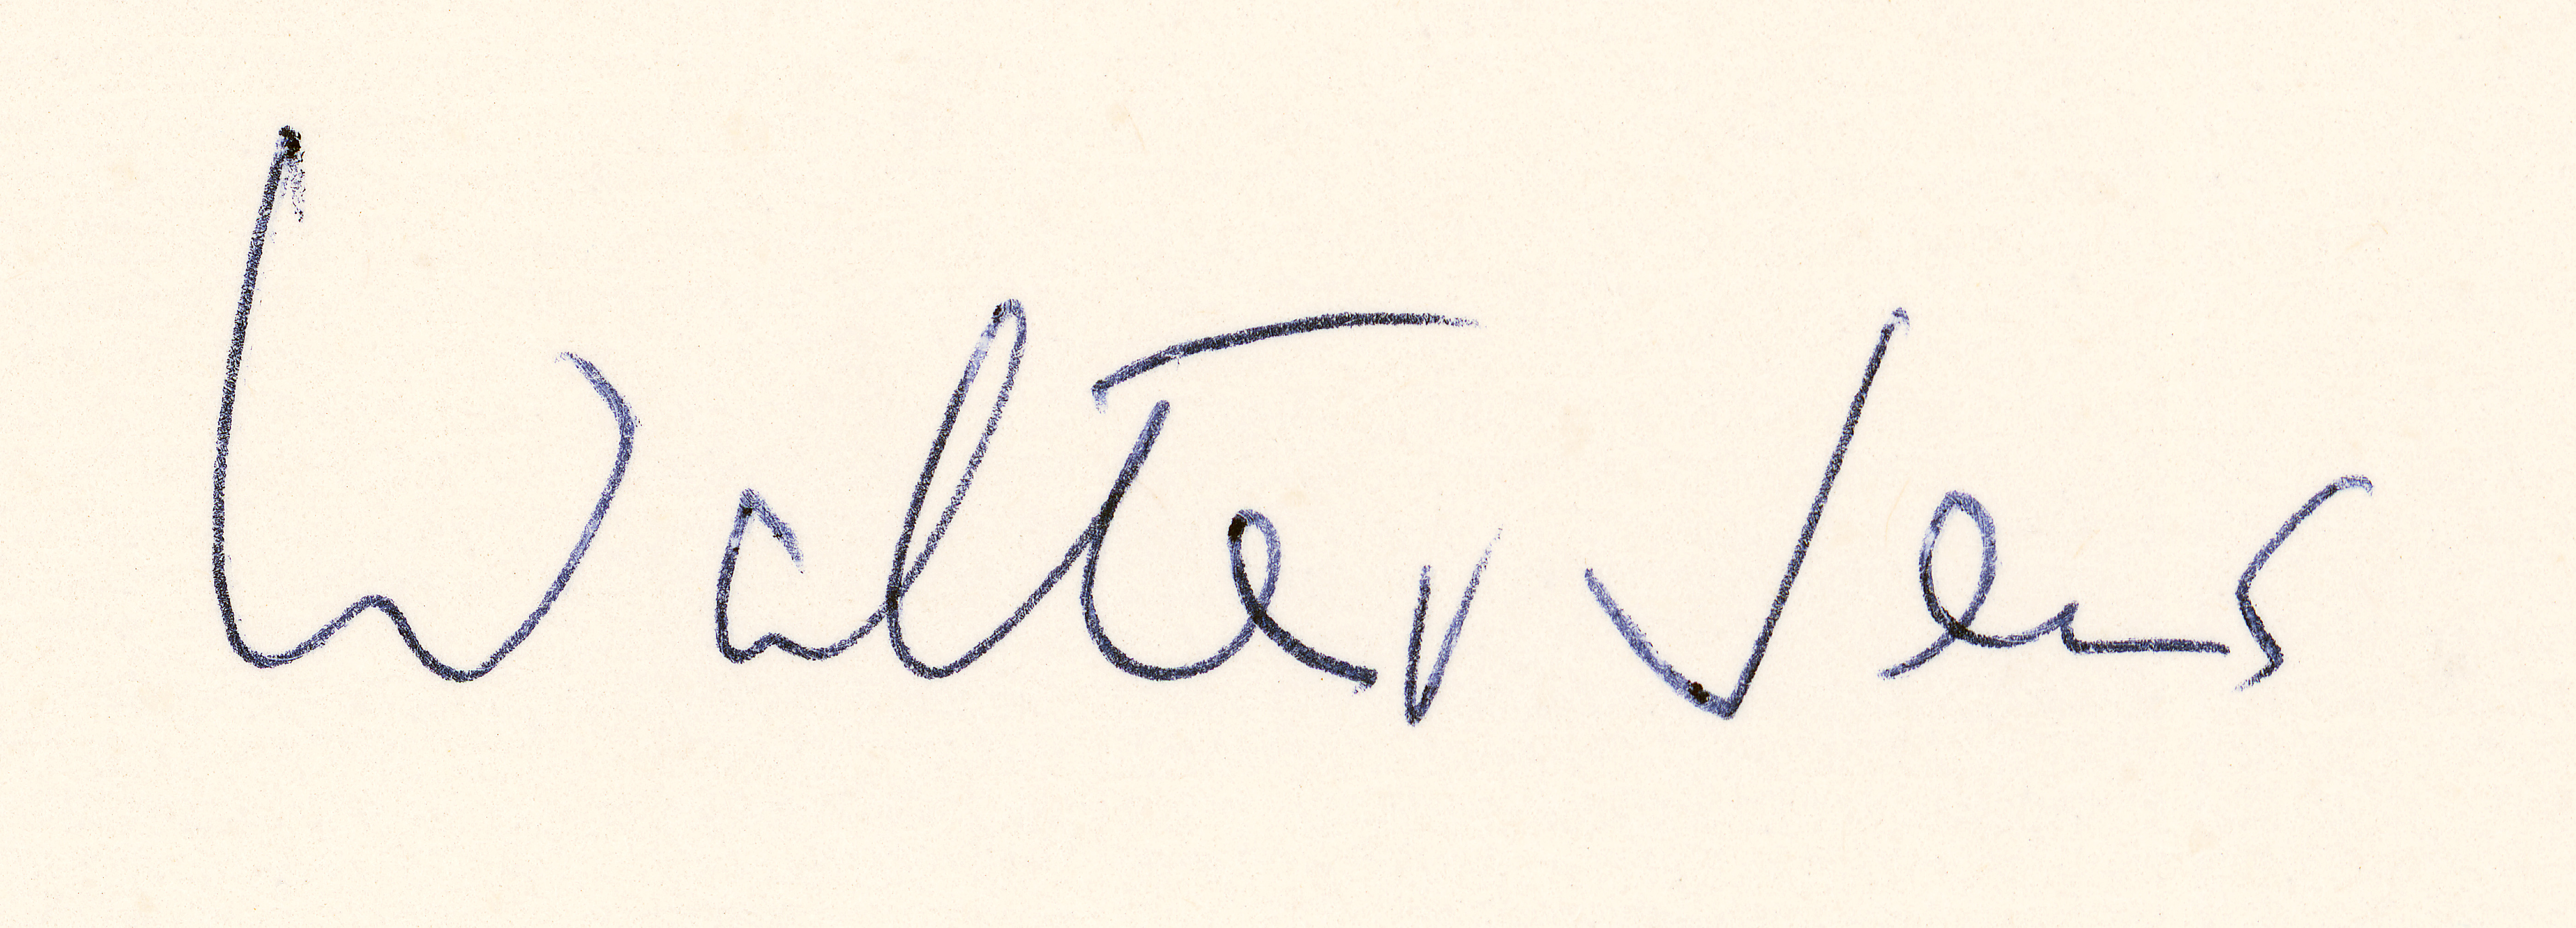 Walter Jens